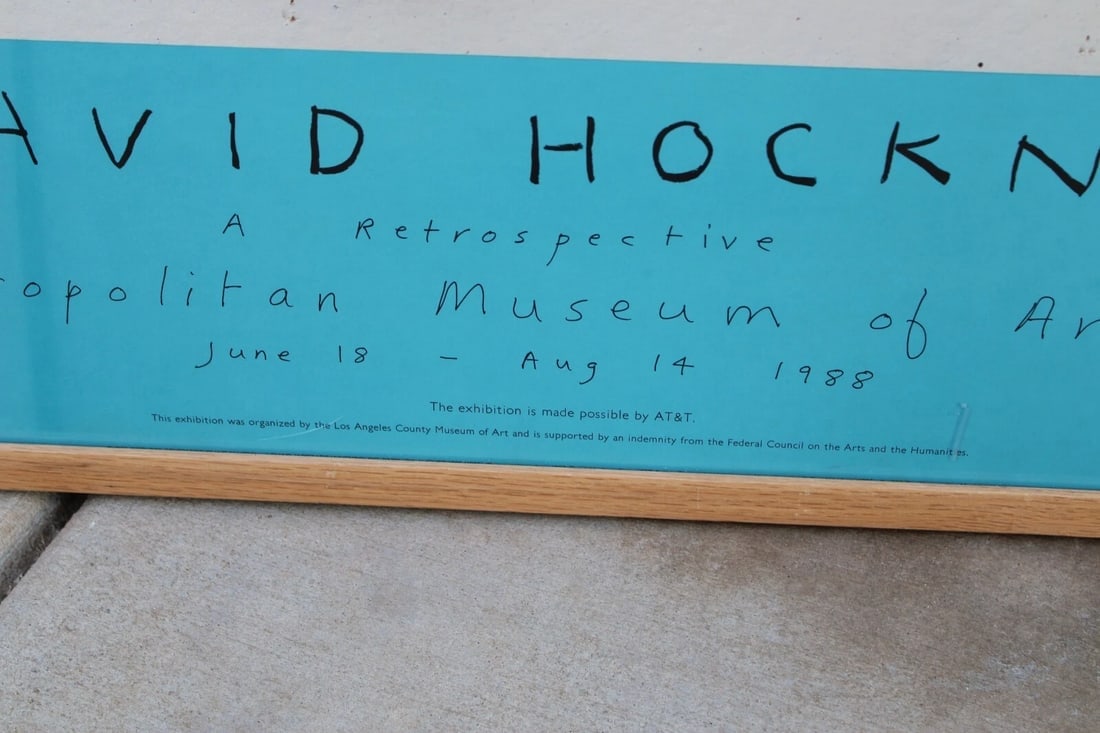 AVID HOCKN
A Retrospective
opolitan Museum of Ar
June 18 - Aug 14 1988
The exhibition is made possible by AT&T.
This exhibition was organized by the Los Angeles County Museum of Art and is supported by an indemnity from the Federal Council on the Arts and the Humanities.